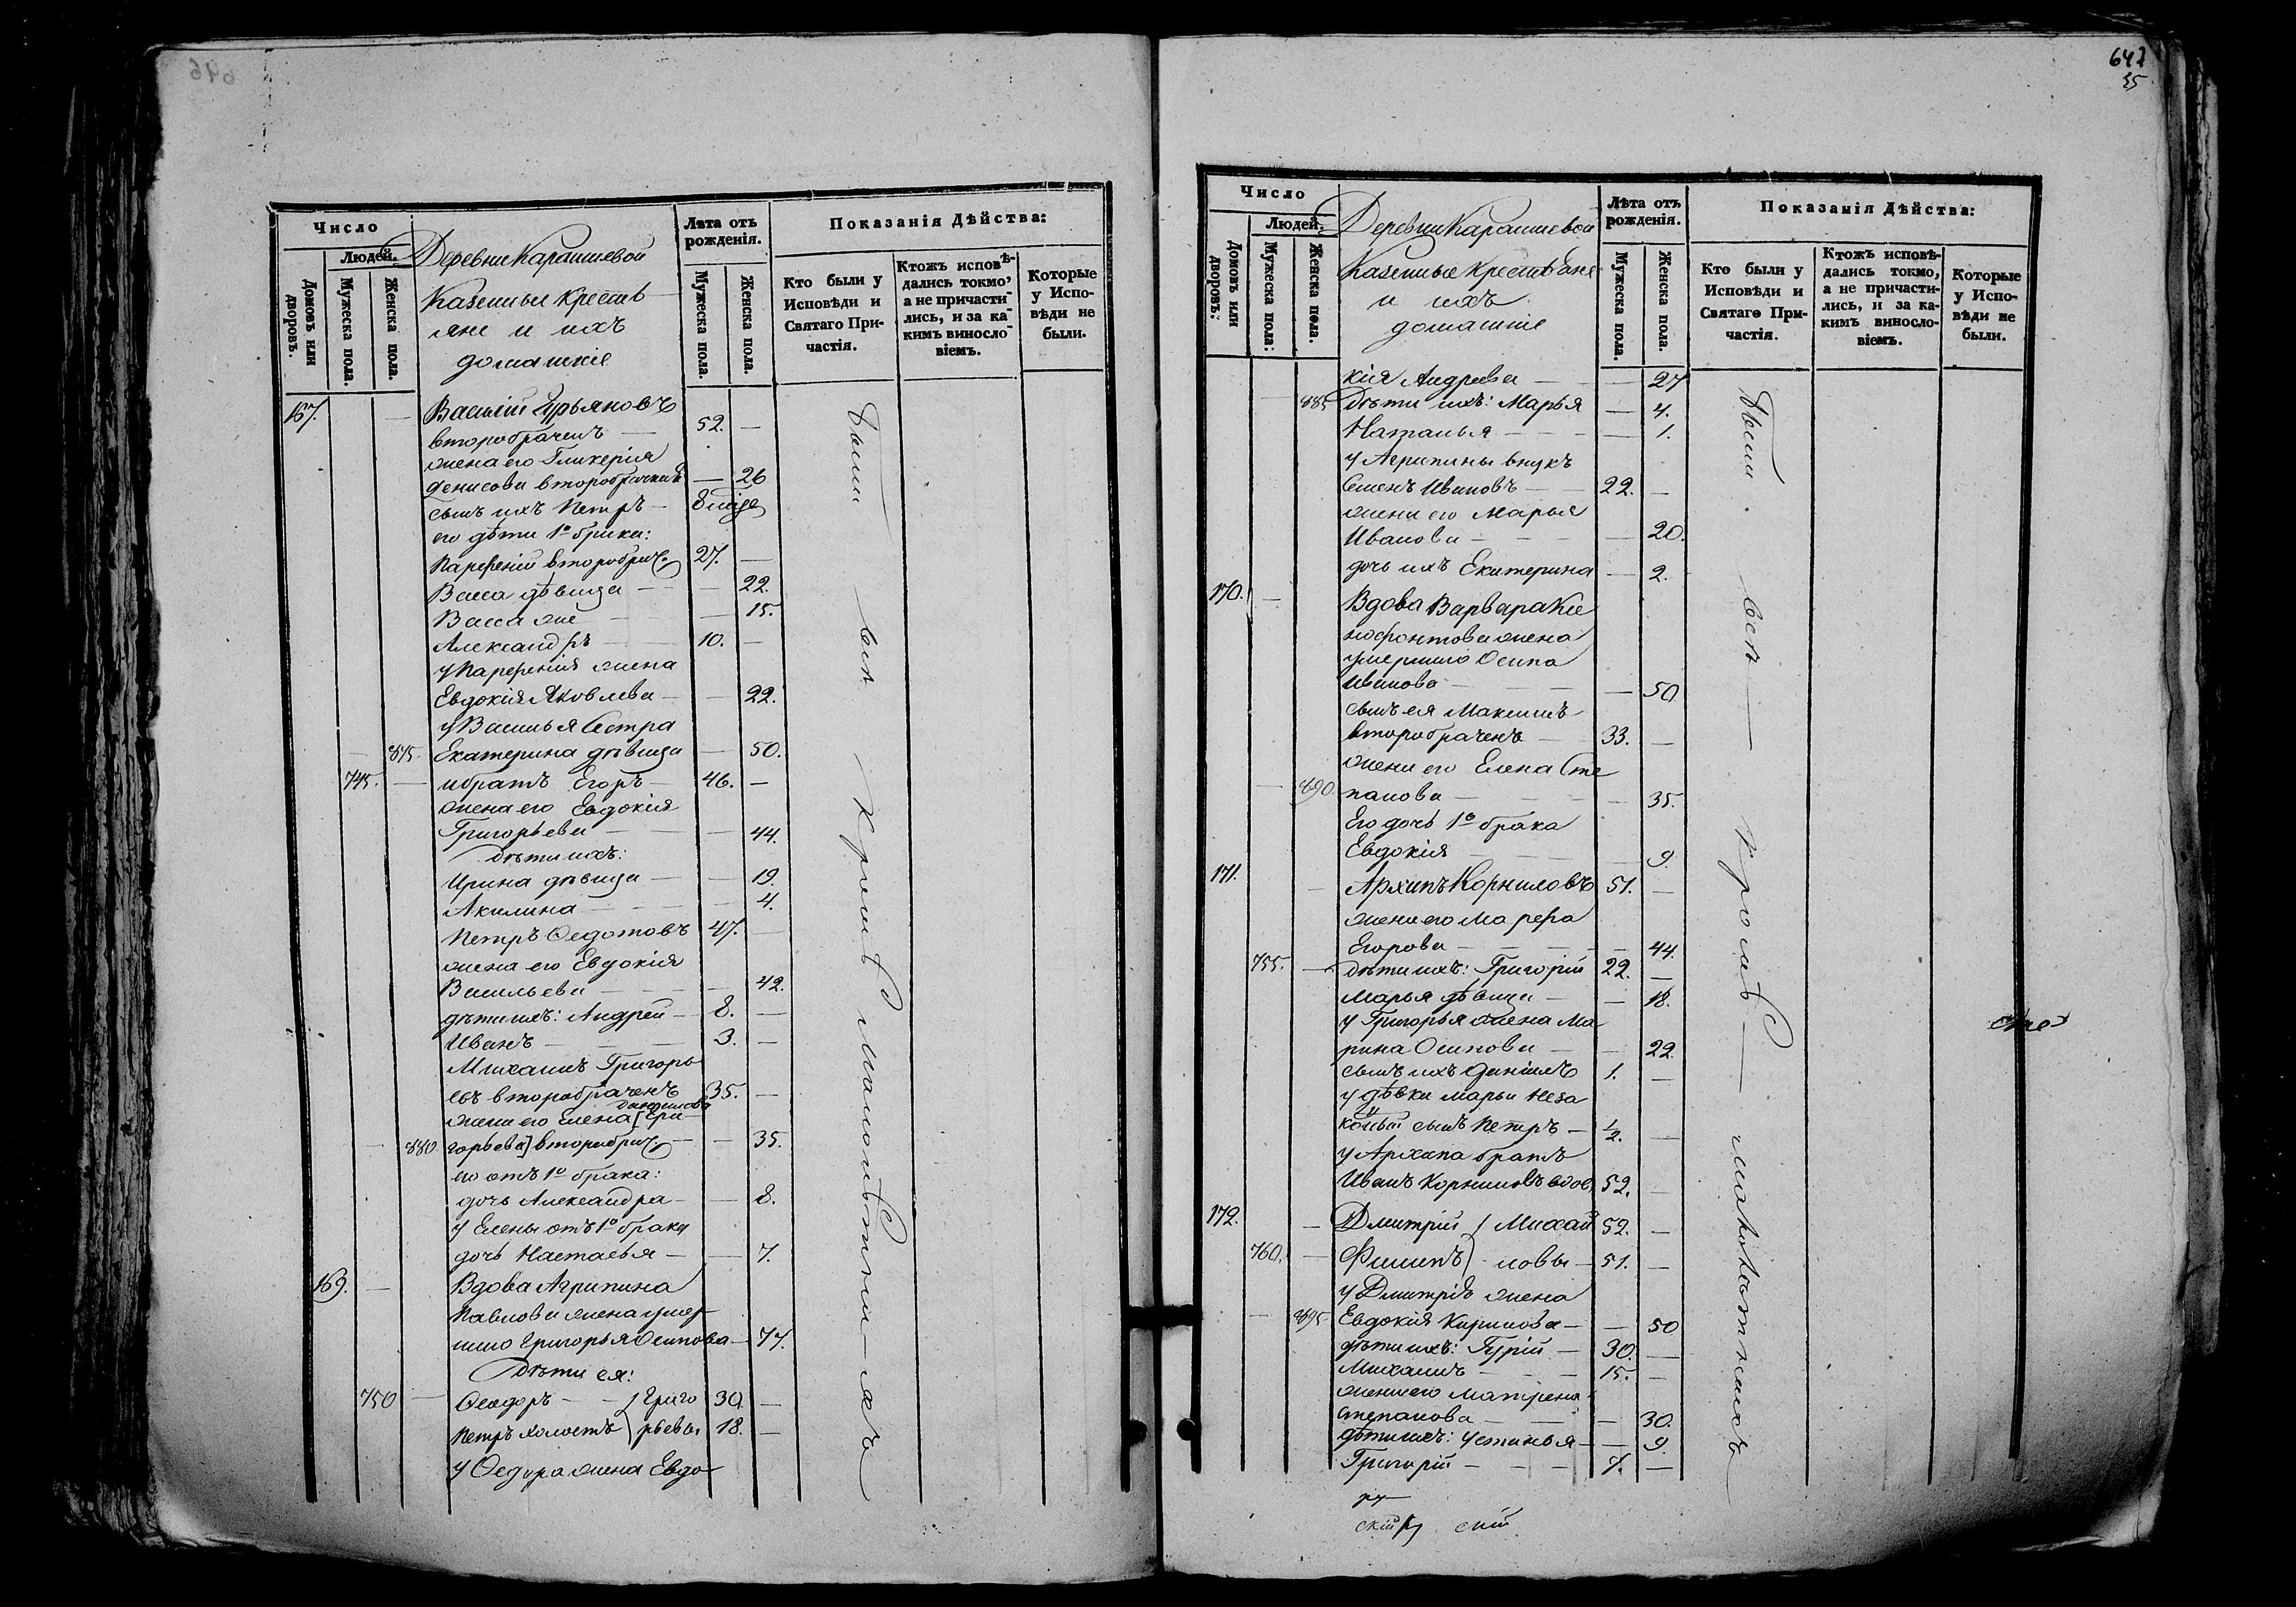 647
35
Число
Людей.
Домовъ или дворовъ.
Мужеска пола.
Женска пола.
Деревни Караишевой
Казенные крестья
яне и ихъ
домашніе
Лѣта отъ рожденія.
Мужеска пола.
Женска пола.
Показанія Дѣйства:
Кто были у Исповѣди и Святаго Причастія.
Ктожъ исповѣдались токмо, а не причастились, и за какимъ винословіемъ.
Которые у Исповѣди не были.
167. — Василій Юрьяновъ
второбраченъ — 52. —
жена его Гликерія
Денисова второбрачная — 26
сынъ ихъ Петръ —
его дѣти 1го брака:
Парѳеній второбрач. 27. —
Васса дѣвица — — 22.
Васса же — — 15.
Александръ — 10. —
у Парѳенія жена
Евдокія Яковлева — — 22.
у Василья сестра
— 875. Екатерина дѣвица — 50.
745. — и братъ Егоръ — 46. —
жена его Евдокія
Григорьева — — 44.
дѣти ихъ:
Ирина дѣвица — — 19.
Акилина — — 4.
Петръ Ѳедотовъ 47. —
жена его Евдокія
Васильева — — 42.
дѣти ихъ: Андрей — 8. —
Иванъ — — 3. —
Михаилъ Григорь
евъ второбраченъ 35. —
Данилова
жена его Елена [Гри—
— 880. горьева] второбрач. — — 35.
его отъ 1го брака:
дочь Александра — — 8.
у Елены отъ 1го брака
дочь Настасья — — 7.
169. — Вдова Агрипина
Павлова жена умер
шаго Григорья Осипова — 77.
Дѣти ея:
750 — Ѳеодоръ — — } Григо 30. —
Петръ холостъ } рьевы 18. —
у Ѳедора жена Евдо
Были — всѣ — кромѣ малолѣтних—ъ
Число
Людей.
Домовъ или дворовъ.
Мужеска пола.
Женска пола.
Деревни Караишевой
Казенные крестьяне
и ихъ
домашніе
Лѣта отъ рожденія.
Мужеска пола.
Женска пола.
Показанія Дѣйства:
Кто были у Исповѣди и Святаго Причастія.
Ктожъ исповѣдались токмо, а не причастились, и за какимъ винословіемъ.
Которые у Исповѣди не были.
кія Андреева — — 27
— 885 Дѣти ихъ: Марья — 4.
Наталья — — — 1.
у Агрипины внукъ
Семенъ Ивановъ — 22. —
жена его Марья
Иванова — — — 20.
дочь ихъ Екатерина — 2.
170. — Вдова Варвара Ксе
нофонтова жена
умершаго Осипа
Иванова — — — 50
сынъ ея Максимъ
второбраченъ — 33. —
жена его Елена Сте
— 890. панова — — 35.
Его дочь 1го брака
Евдокія — — 9.
171. — Архипъ Корниловъ 51. —
жена его Марѳа
Егорова — — — 44.
755. — дѣти ихъ: Григорій 22. —
Марья дѣвица — — 18.
у Григорья жена Ма
рина Осипова — — 22
сынъ ихъ Даніилъ 1. —
у дѣвки Марьи неза
конный сынъ Петръ — ½. —
у Архипа братъ
Иванъ Корниловъ вдов. 52. —
172. — Дмитрій } Михай 52. —
760. — Филипъ } ловы — 51. —
у Дмитрія жена
— 895 Евдокія Кирилова — — 50
дѣти ихъ: Гурій — 30. —
Михаилъ — — 15. —
жена его Матрена
Степанова — — 30.
дѣти ихъ: Устинья — — 9.
Григорій — — 7. —
Были — всѣ — кромѣ — малолѣтнихъ
скій скій